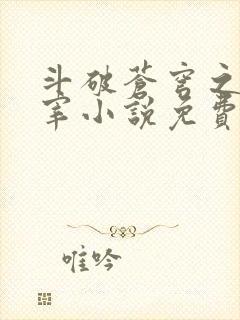 斗破蒼穹之
宰小說免費
唯吟